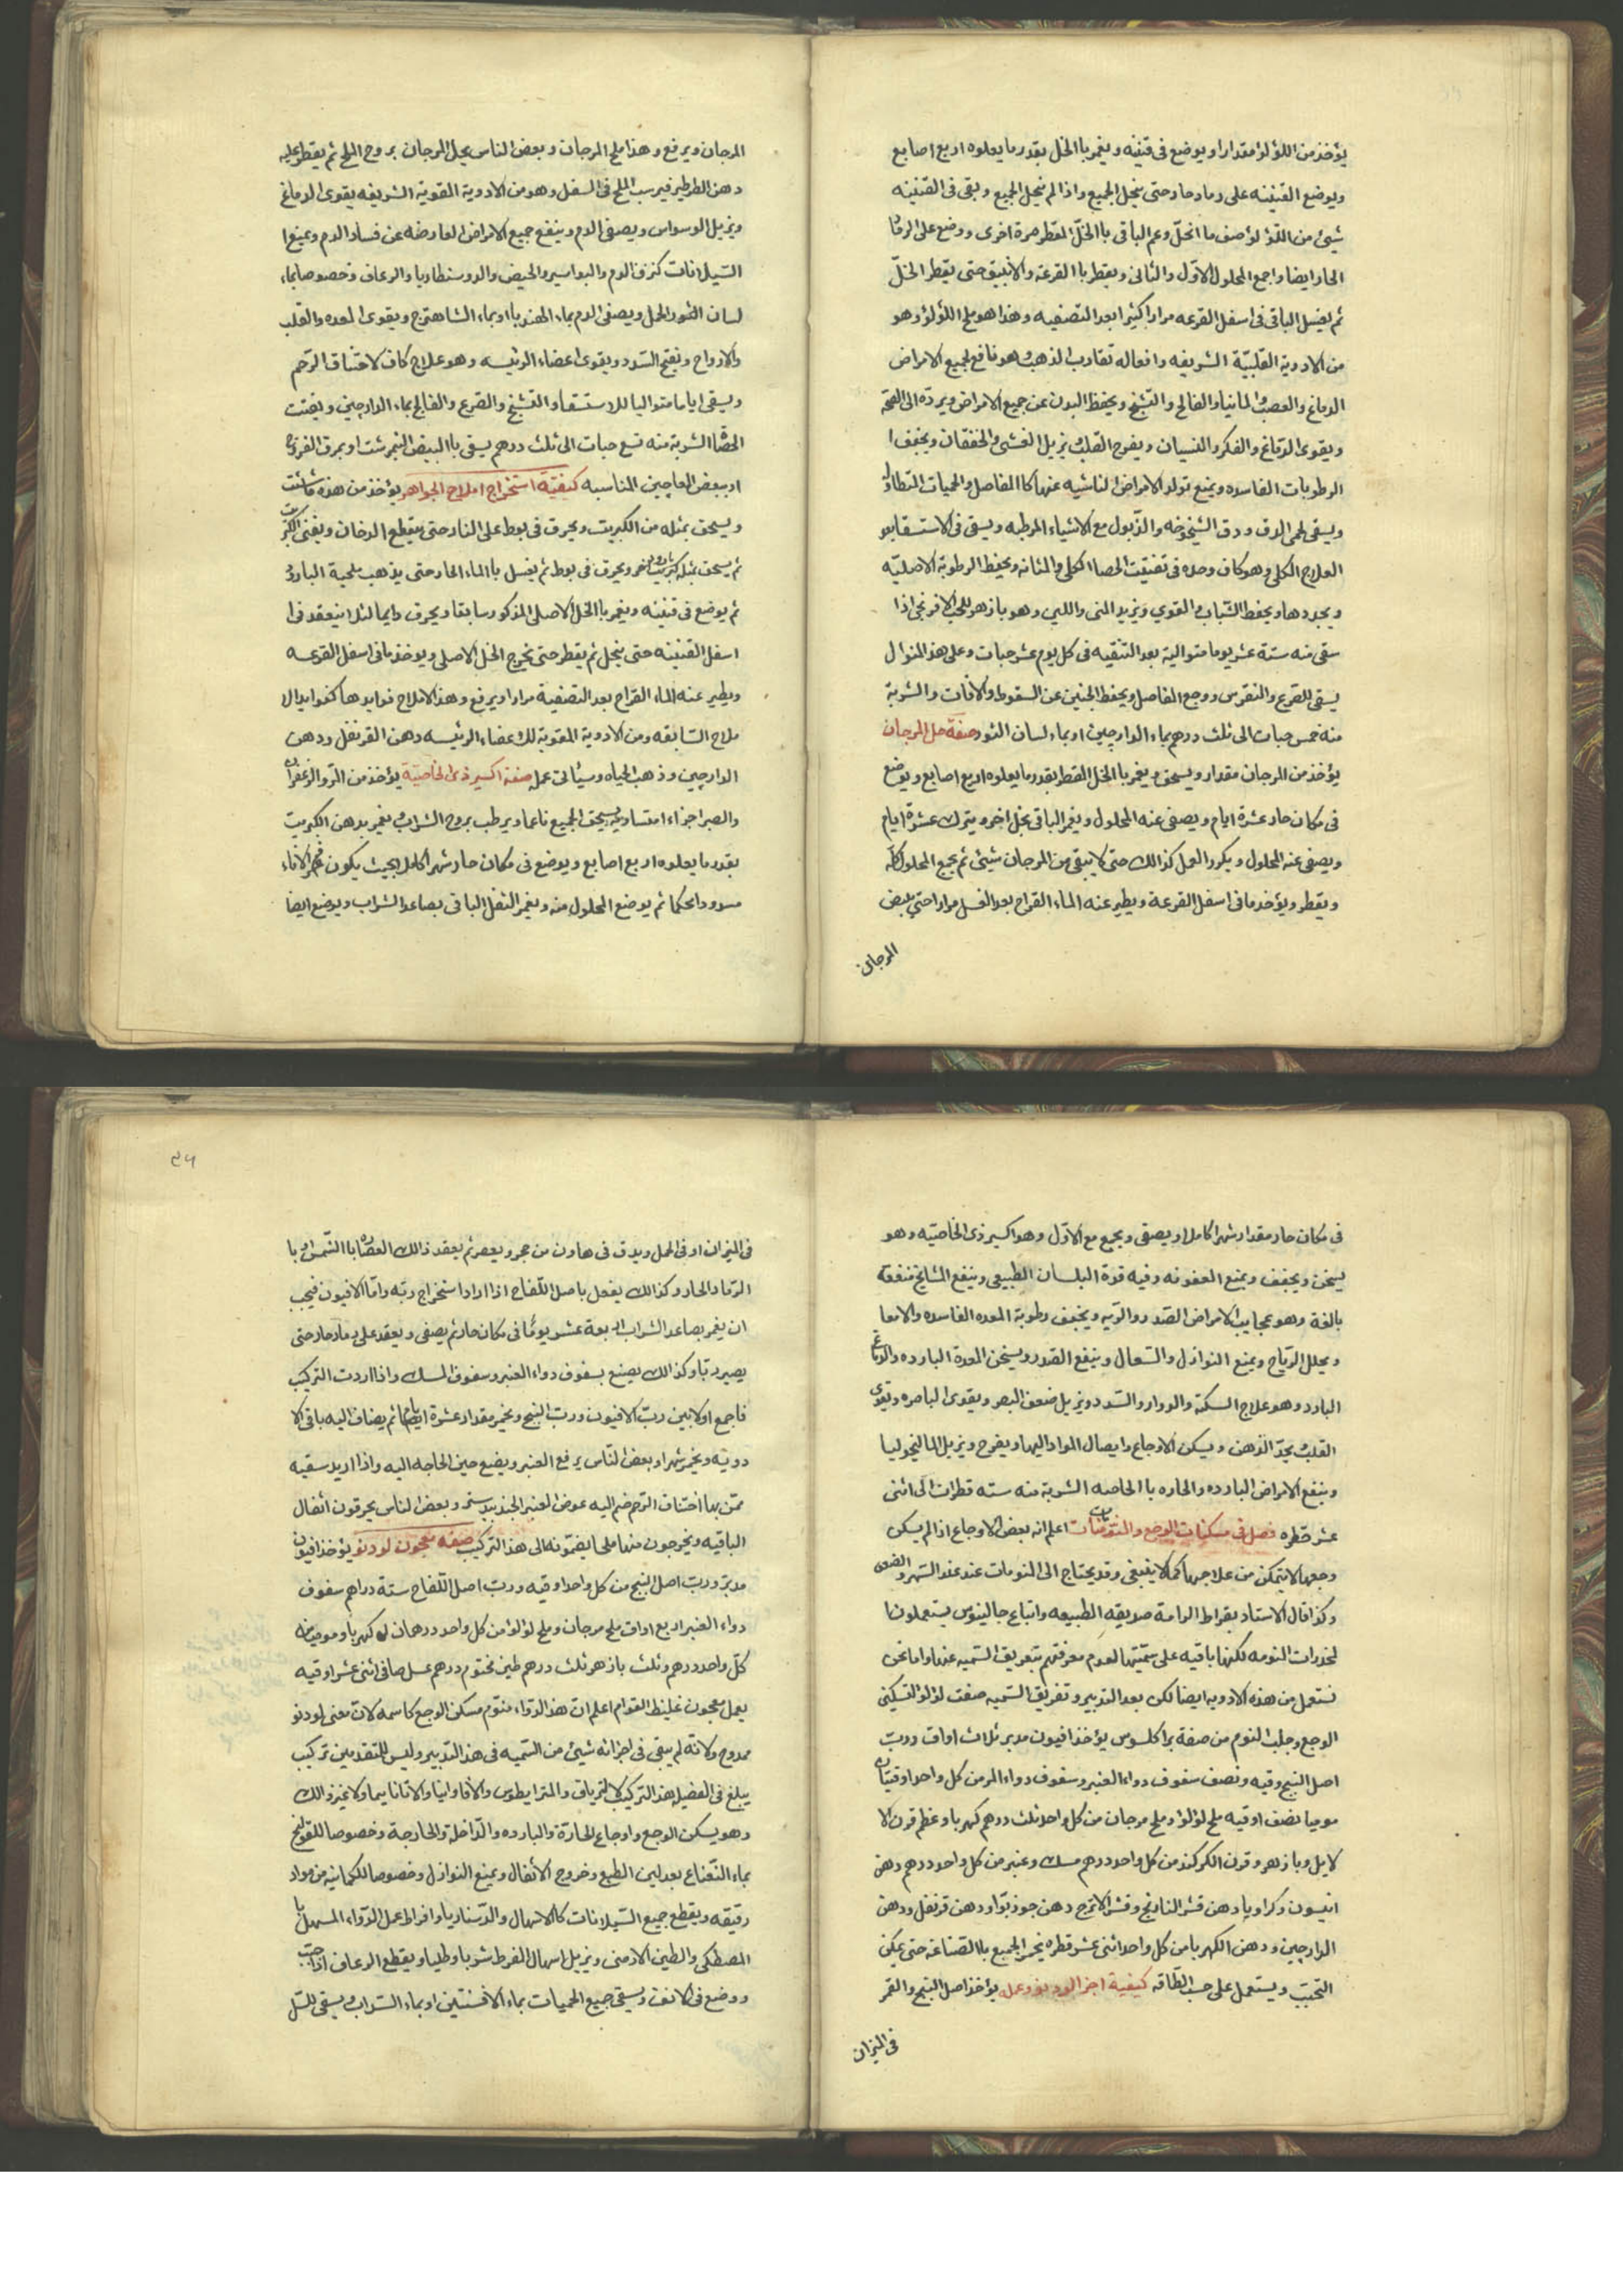 يؤخذ من اللؤلؤ مقدارا ويوضع فى قنينه ويغمر باالخل بقدر ما يعلوه اربع اصابع
ويوضع القنينه على رماد حار حتى ينحل الجميع واذا لم ينحل الجميع وبقى فى القنينه
شيئ من اللؤلؤ صف ما انحل وغم الباقى باالخل المقطر مرة اخرى ووضع على الرماد
الحار ايضا واجمع المحلول الاول والثانى ويقطر باالقرعة والانبيق حتى يقطر الخل
ثم يغسل الباقى فى اسفل القرعه مرارا كثيرا بعد التصفيه وهذا هو ملح اللؤلؤ وهو
من الادوية القلبية الشريفه وافعاله تقارب الذهب وهو نافع لجميع الامراض
الدماغ والعصب والمانيا والفالج والتشنج ويحفظ البدن عن جميع الامراض ويرده الى الصحة
ويقوى الدماغ والفكر والنسيان ويفرح القلب ويزيل الغشى والخفقان ويجفف ا
الرطوبات الفاسده ويمنع تولد الامراض الناشيه عنها كاالمفاصل والحميات المتطاوله
ويسقى لحمى الدق ودق الشيخوخه والذبول مع الاشياء المرطبه ويسقى فى الاستسقا بعد
العلاج الكلى وهو كاف وحده فى تفتيت الحصا الكلى والمثانه ويحفظ الرطوبة الاصلية
ويجددها ويحفظ الشباب والقوي ويزيد المنى واللبن وهو بازهر للحب الافرنجى اذا
سقى منه ستة عشر يوما متوالية بعد التنقيه فى كل يوم عشر حبات وعلى هذا المنوال
يسقى للصرع والنقرس ووجع المفاصل ويحفظ الجنين عن السقوط والافات والشربة
منه خمس حبات الى ثلث درهم بماء الدارجين او بماء لسان الثور صفة حل المرجان
يؤخذ من المرجان مقدار ويسحق ويغمر باالخل المقطر بقدر ما يعلوه اربع اصابع ويوضع
فى مكان حار عشرة ايام ويصفى عنه المحلول ويغمر الباقى بخل اخر ويترك عشرة ايام
ويصفى عنه المحلول ويكرر العمل كذالك حتى لا يبقى من المرجان شيئ ثم يجمع المحلول كله
ويقطر ويؤخذ ما فى اسفل القرعة ويطير عنه الماء القراح بعد الغسل مرارا حتى يبيض
المرجان
المرجان ويرفع وهذا ملح المرجان وبعض الناس يحل المرجان بروح الملح ثم يقطر عليه
دهن الطرطير فيرسب الملح فى السفل وهو من الادوية القوية الشريفه يقوى الدماغ
ويزيل الوسواس ويصفى الدم وينفع جميع الامراض العارضه عن فساد الدم ويمنع ا
السيلانات كنزف الدم والبواسير والحيض والدوسنطاريا والرعاف وخصوصا بماء
لسان الثور الحمل ويصفى الدم بماء الهندبا او بماء الشاهترج ويقوى المعده والقلب
والارواح ويفتح السدد ويقوى اعضاء الرئيسه وهو علاج كاف لاختناق الرحم
ويسقى اياما متواليا للاستسقا والتشنج والصرع والفالج بماء الدارجين ويفتت
الحصا الشربة منه تسع حبات الى ثلث درهم يسقى باالبيض النيمرشت او بمرق الفروج
او ببعض المعاجين المناسبه كيفية استخراج املاح الجواهر يؤخذ من هذه ما شئت
ويسحق بمثله من الكبريت ويحرق فى بوط على النار حتى ينقطع الدخان ويفنى الكبريت
ثم يسحق بمثله ويحرق فى بوط ثم يغسل باالماء الحار حتى يذهب ملحية البارود
ثم يوضع فى قنينه ويغمر باالخل الاصلى المذكور سابقا ويحرق دايما لئلا ينعقد فى ا
اسفل القنينه حتى ينحل ثم يقطر حتى يخرج الخل الاصلى ويوخذ ما فى اسفل القرعه
ويطير عنه الماء القراح بعد التصفية مرارا ويرفع وهذا الاملاح فوايدها كفوايد الا
ملاح السابقه ومن الادوية المقوية للاعضاء الرئيسه دهن القرنفل ودهن
الدارجين وذهب الحياه وسيأتى عمله صفة اكسير ذى الخاصية يؤخذ من المر والزعفران
والصبر اجزاء متساويه يسحق الجميع ناعما ويرطب بروح الشراب ويغمر بدهن الكبريت
بقدر ما يعلوه اربع اصابع ويوضع فى مكان حار شهرا كاملا بحيث يكون فم الاناء
مسدودا محكما ثم يوضع المحلول منه ويغمر الثفل الباقى بصاعد الشراب ويوضع ايضا
فى مكان حار مقدار شهرا كاملا ويصفى ويجمع مع الاول وهو اكسير ذى الخاصيه وهو
يسخن ويجفف ويمنع العفونه وفيه قوة البلسان الطبيعى وينفع المشايخ منفعة
بالغة وهو عجايب لامراض الصدر والريه ويجفف رطوبة المعده الفاسده والامعا
ويحلل الرياح ويمنع النوازل والسعال وينفع الصدر ويسخن المعدة البارده والدماغ
البارد وهو علاج السكته والدوار والسدد ويزيل ضعف البصر ويقوى الباصره ويقوى
القلب يحد الذهن ويسكن الاوجاع وايصال المواد اليها ويفرح ويزيل الماليخوليا
وينفع الامراض البارده والحاره باالخاصه الشربة منه سته قطرات الى اثنى
عشر قطره فصل فى مسكنات الوجع والمنومات اعلم انه بعض الاوجاع اذا لم يسكن
وجعها لا يتمكن من علاجها كما لا ينبغى وقد يحتاج الى المنومات عند عند السهر والضعف
وكذا قال الاستاد بقراط الراحة صديقه الطبيعه واتباع جالينوس يستعملون ا
لمخدرات المنومه لكنها باقيه على سميتها لعدم معرفتهم بتفريق السميه عنها واما نحن
نستعمل من هذه الادويه ايضا لكن بعد التدبير وتفريق السميه صفت لؤلؤ لتسكين
الوجع وجلب النوم من صفة براكلسوس يؤخذ افيون مدبر ثلاث اواق ورب
اصل البنج وقيه ونصف سفوف دواء العنبر وسفوف دواء المر من كل واحد اوقيتان
موميا نصف اوقيه ملح لؤلؤ وملح مرجان من كل واحد ثلث درهم كهربا وعظم قرن الا
لايل وبازهر وقرن الكركند من كل واحد درهم مسك وعنبر من كل واحد درهم دهن
انيسون وكراويا دهن قشر النارنج وقشر الاترج دهن جوز بوا ودهن قرنفل ودهن
الدارجين ودهن الكهربا من كل واحد اثنى عشر قطره يخمر الجميع باالصناعه حتى يمكن
التحبب ويستعمل على حسب الطاقه كيفية اجزا لودنو وعمله يؤخذ اصل البنج والقمر
فى الميزان
٤٦
فى الميزان او فى الحمل ويدق فى هاون من حجر ويعصر ثم يعقد ذالك العصاره باالشمس او با
الرماد الحار وكذالك يفعل باصل اللفاح اذا اراد استخراج ربه واما الافيون فيجب
ان يغمر بصاعد الشراب اربعة عشر يوما فى مكان حار ثم يصفى ويعقد على رماد حار حتى
يصير ربا وكذالك يصنع بسفوف دواء العنبر وسفوف المسك واذا اردت التركيب
فاجمع اولا بين رب الافيون ورب البنج ويخمر مقدار عشرة ايام ثم يضاف اليه باقى الا
دويه ويخمر شهرا وبعض الناس يرفع العنبر ويضيع حين الحاجه اليه واذا اريد سقيه
ممن بها اختناق الرحم ضم اليه عوض العنبر الجندبيدستر وبعض الناس يحرقون اثفال
الباقيه ويخرجون منها ملحا يضمونه الى هذا التركيب صفة معجون لودنو يؤخذ افيون
مدبر ورب اصل البنج من كل واحد اوقيه ورب اصل اللفاح ستة دراهم سفوف
دواء العنبر اربع اواق ملح مرجان وملح لؤلؤ من كل واحد درهمان كهربا وموميا من
كل واحد درهم وثلث بازهر ثلث درهم طين مختوم درهم عسل صافى اثنى عشر اوقيه
يعمل معجون غليظ القوام اعلم ان هذا الدواء منوم مسكن الوجع كاسمه لان معنى لودنو
ممدوح ولانه لم يبقى فى اجزائه شيئ من السميه فى هذا التدبير وليس للمتقدمين تركيب
يبلغ فى الفضيله هذا التركيب لا ترياق والمترايطوس والافاوانيا والاثاناسيا ولا غير ذالك
وهو يسكن الوجع واوجاع الحارة والبارده والداخلة والخارجة وخصوصا للقولنج
بماء النعناع بعد لين الطبع وخروج الاثفال ويمنع النوازل وخصوصا للكماينه من مواد
رقيقه ويقطع جميع السيلانات كاالاسهال والدسنتاريا وافراط عمل الدواء المسهل با
المصطكى والطين الارمنى ويزيل اسهال المفرط شربا وطليا ويقطع الرعاف اذا حبب
ووضع فى الانف ويسقى جميع الحميات بماء الافسنتين او بماء الشراب ويسقى للسل